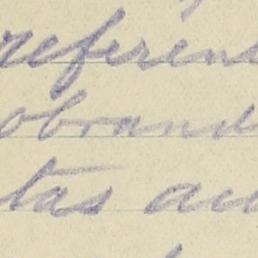 referen
obrand
tas au